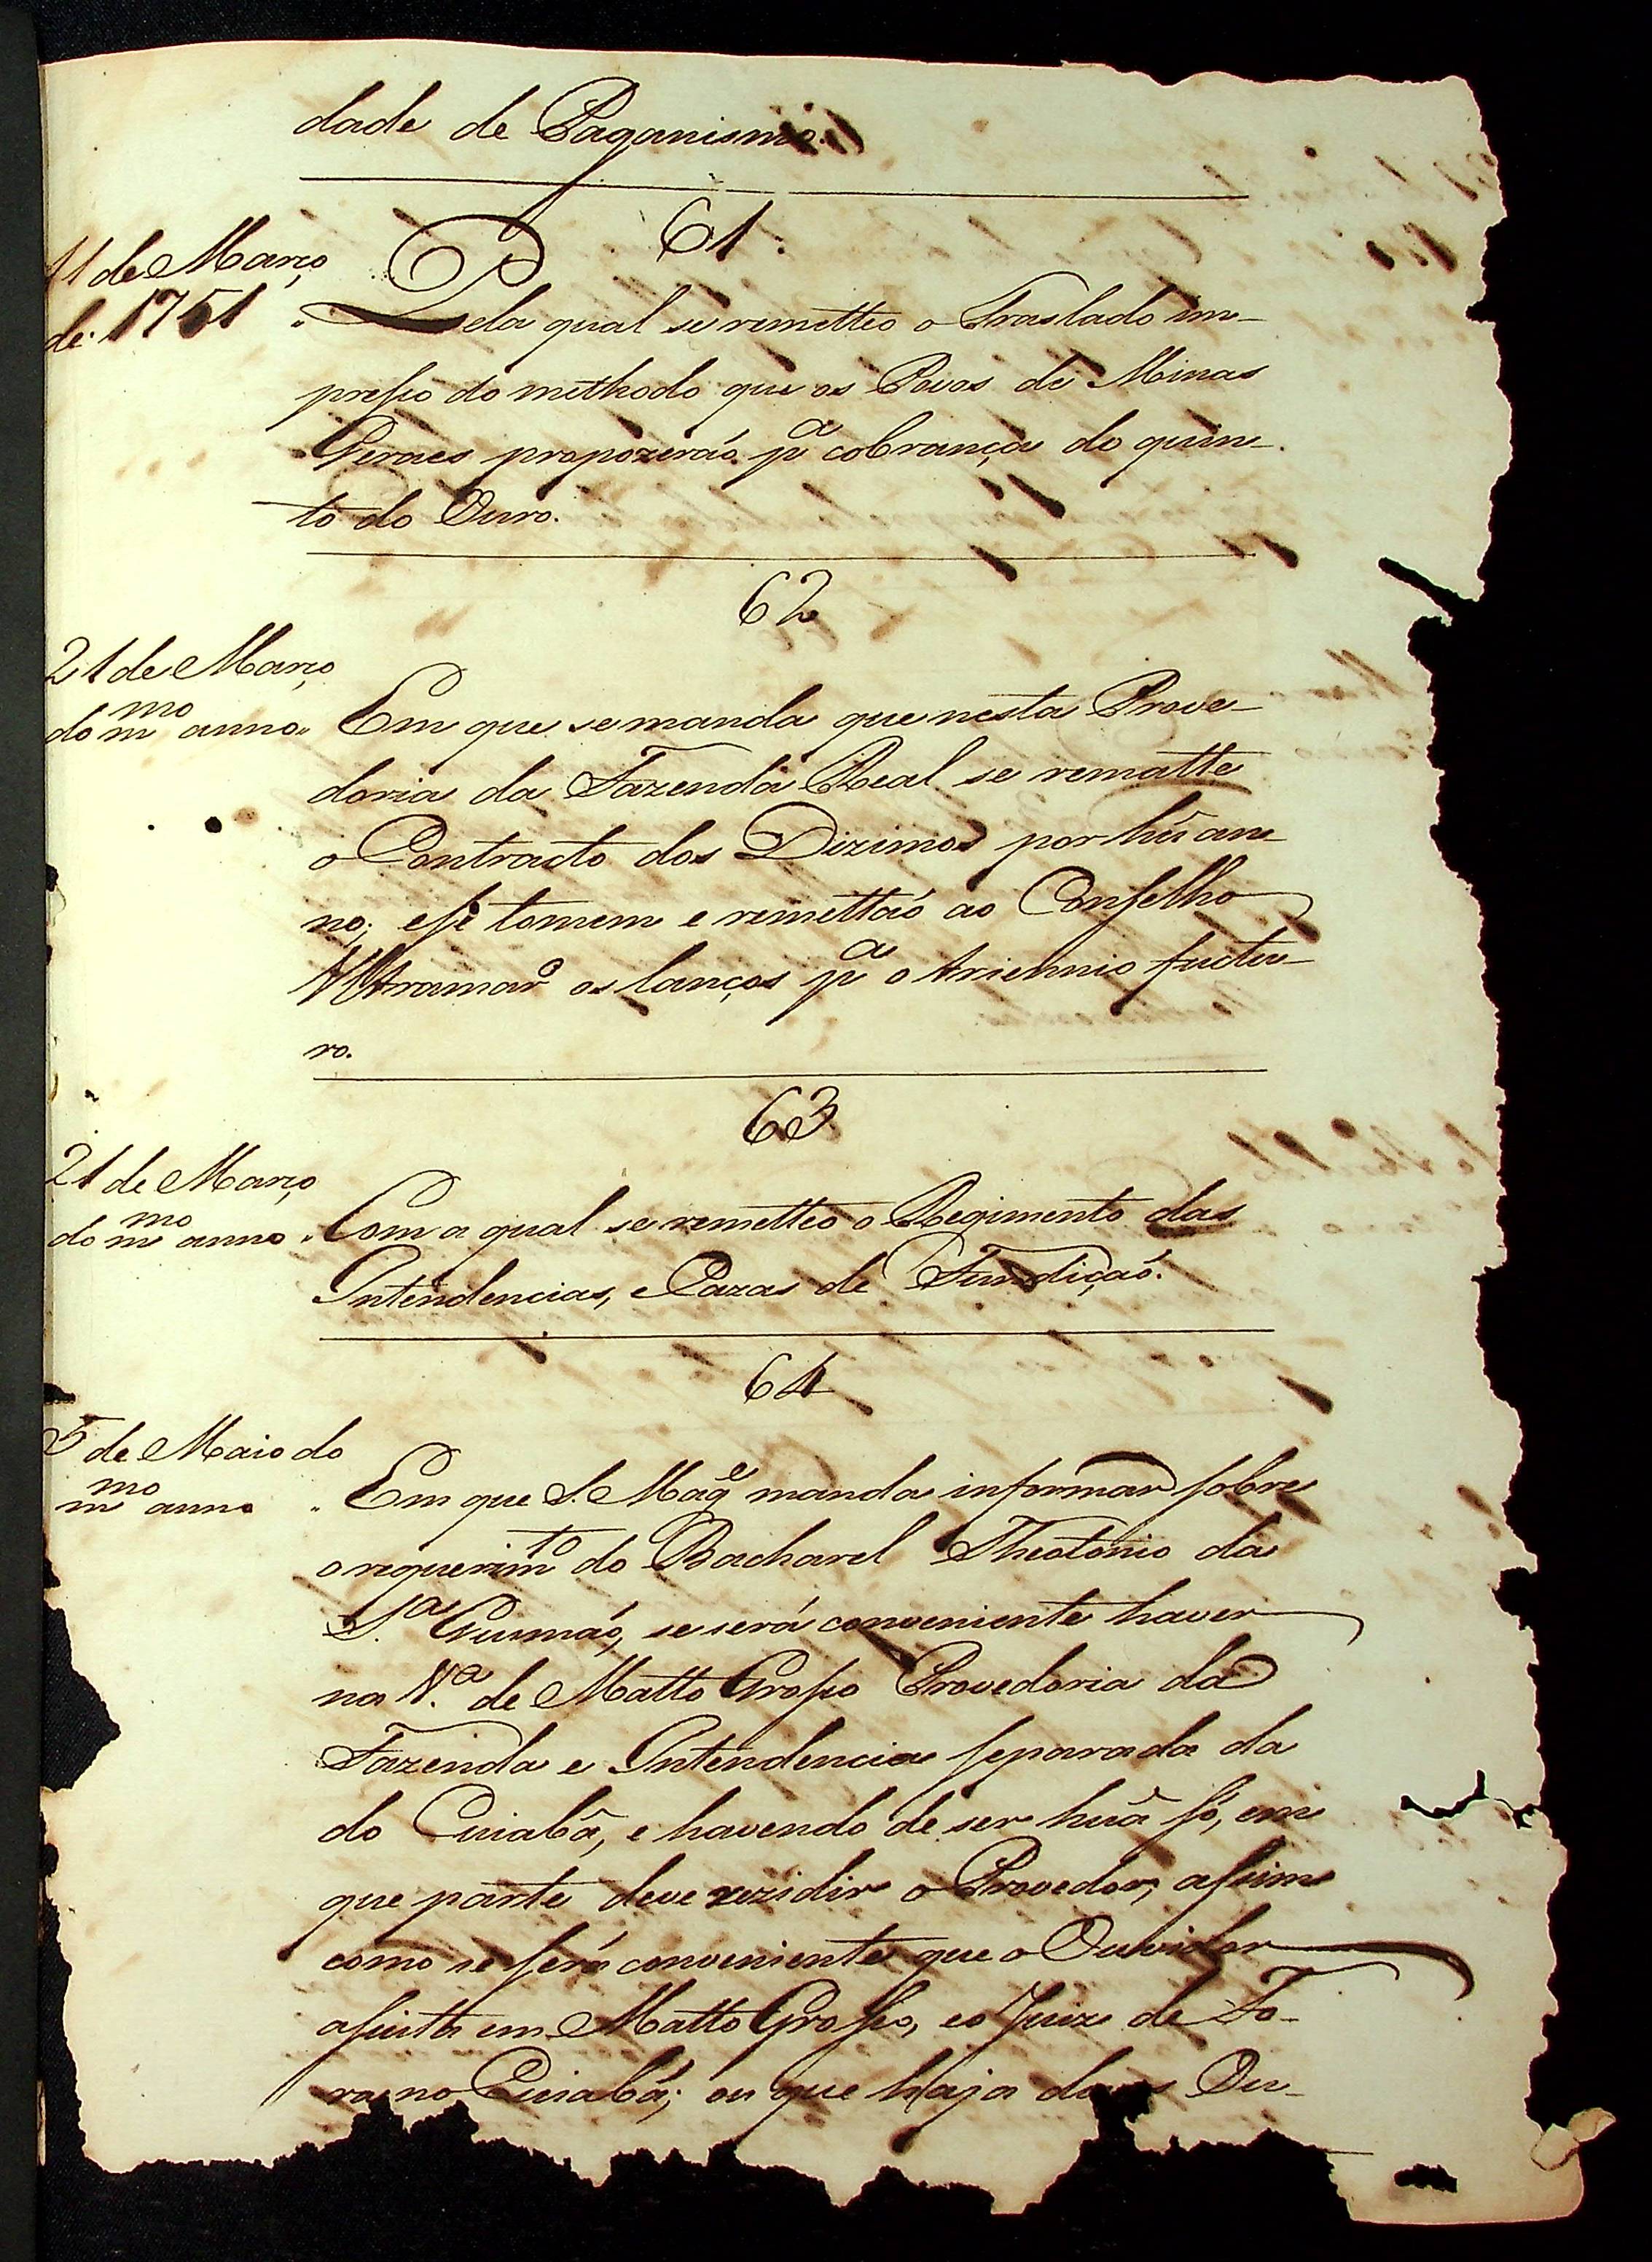 dade de Paganismo.
61.
11 de Março
de 1751 " Pela qual se remetteo o Traslado im-
presso do methodo que os Povos de Minas
Geraes propozeraó pᵃ cobrança do quin-
to do Ouro.
62
21 de Março
do mᵐᵒ anno " Em que se manda que nesta Prove-
doria da Fazenda Real se rematte
o Contracto dos Dizimos por hũ an-
no; e se tomem e remettaó ao Conselho
Ultramarᵒ os lanços pᵃ o triennio fuctu-
ro.
63
21 de Março
do mᵐᵒ anno " Com a qual se remetteo o Regimento das
Intendencias, e Cazas de Fundiçaó.
64
5 de Maio do
mᵐᵒ anno " Em que S. Magᵉ manda informar sobre
o requerimᵗᵒ do Bacharel Theotonio da
Sᵃ Gusmaó, se será conveniente haver
na Vᵃ de Matto Grosso Provedoria da
Fazenda e Intendencia separada da
do Cuiabâ, e havendo de ser huã só, em
que parte deve rezidir o Provedor, assim
como se será conveniente que o Ouvidor
assista em Matto Grosso, e o Juiz de Fo-
ra no Cuiabá; ou que haja dous Ou-